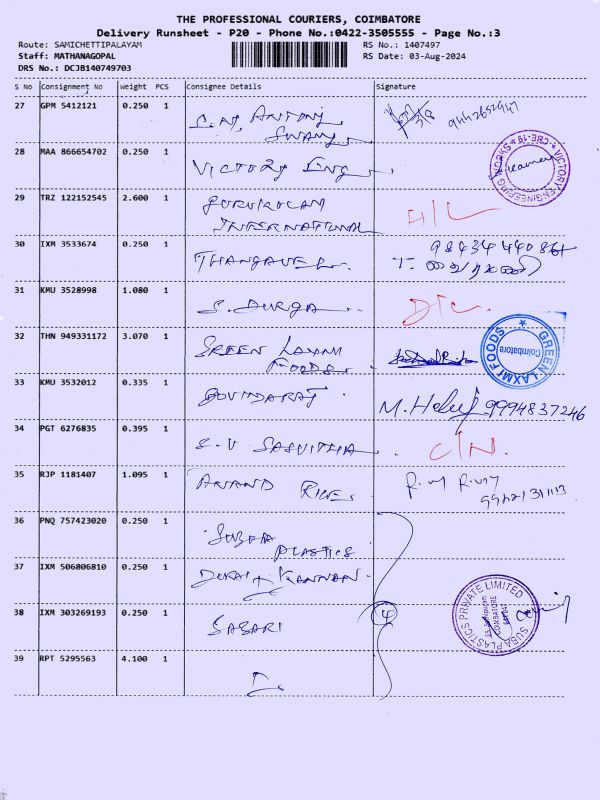 THE PROFESSIONAL COURIERS, COIMBATORE
Delivery Runsheet - P20 - Phone No.:0422-3505555 - Page No.:3
Route: SAMICHETTIPALAYAM RS No.: 1407497
Staff: MATHANAGOPAL RS Date: 03-Aug-2024
DRS No.: DCJB140749703
S No Consignment No Weight PCS Consignee Details Signature
27 GPM 5412121 0.250 1 ANTONY
SWAMY
28 MAA 866654702 0.250 1 VICTORY ENG
VICTORY ENGINEERING WORKS ★ CBE-19 ★
29 TRZ 122152545 2.600 1 GURUKULAM
INTERNATIONAL
30 IXM 3533674 0.250 1 THANGAVEL
31 KMU 3528998 1.080 1 S. DURGA D/L
32 THN 949331172 3.070 1 GREEN LAXMI
FOODS
GREEN LAXMI FOODS ★ Coimbatore
33 KMU 3532012 0.335 1 GOVINDARAJ M. 9994837246
34 PGT 6276835 0.395 1 S. V SASVITHA C/N.
35 RJP 1181407 1.095 1 ANAND
36 PNQ 757423020 0.250 1 SUBHA
PLASTICS
37 IXM 506806810 0.250 1 DURAI KANNAN
38 IXM 303269193 0.250 1 SABARI 4
SUBA PLASTICS PRIVATE LIMITED COIMBATORE
39 RPT 5295563 4.100 1